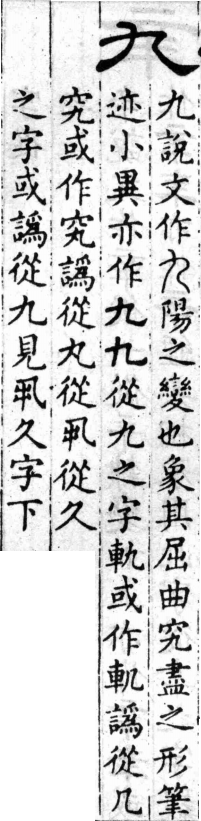 九
九說文作九陽之變也象其屈曲究盡之形筆
迹小異亦作九九從九之字軌或作軓譌從几
究或作究譌從丸從丮從久
之字或譌從九見丮久字下